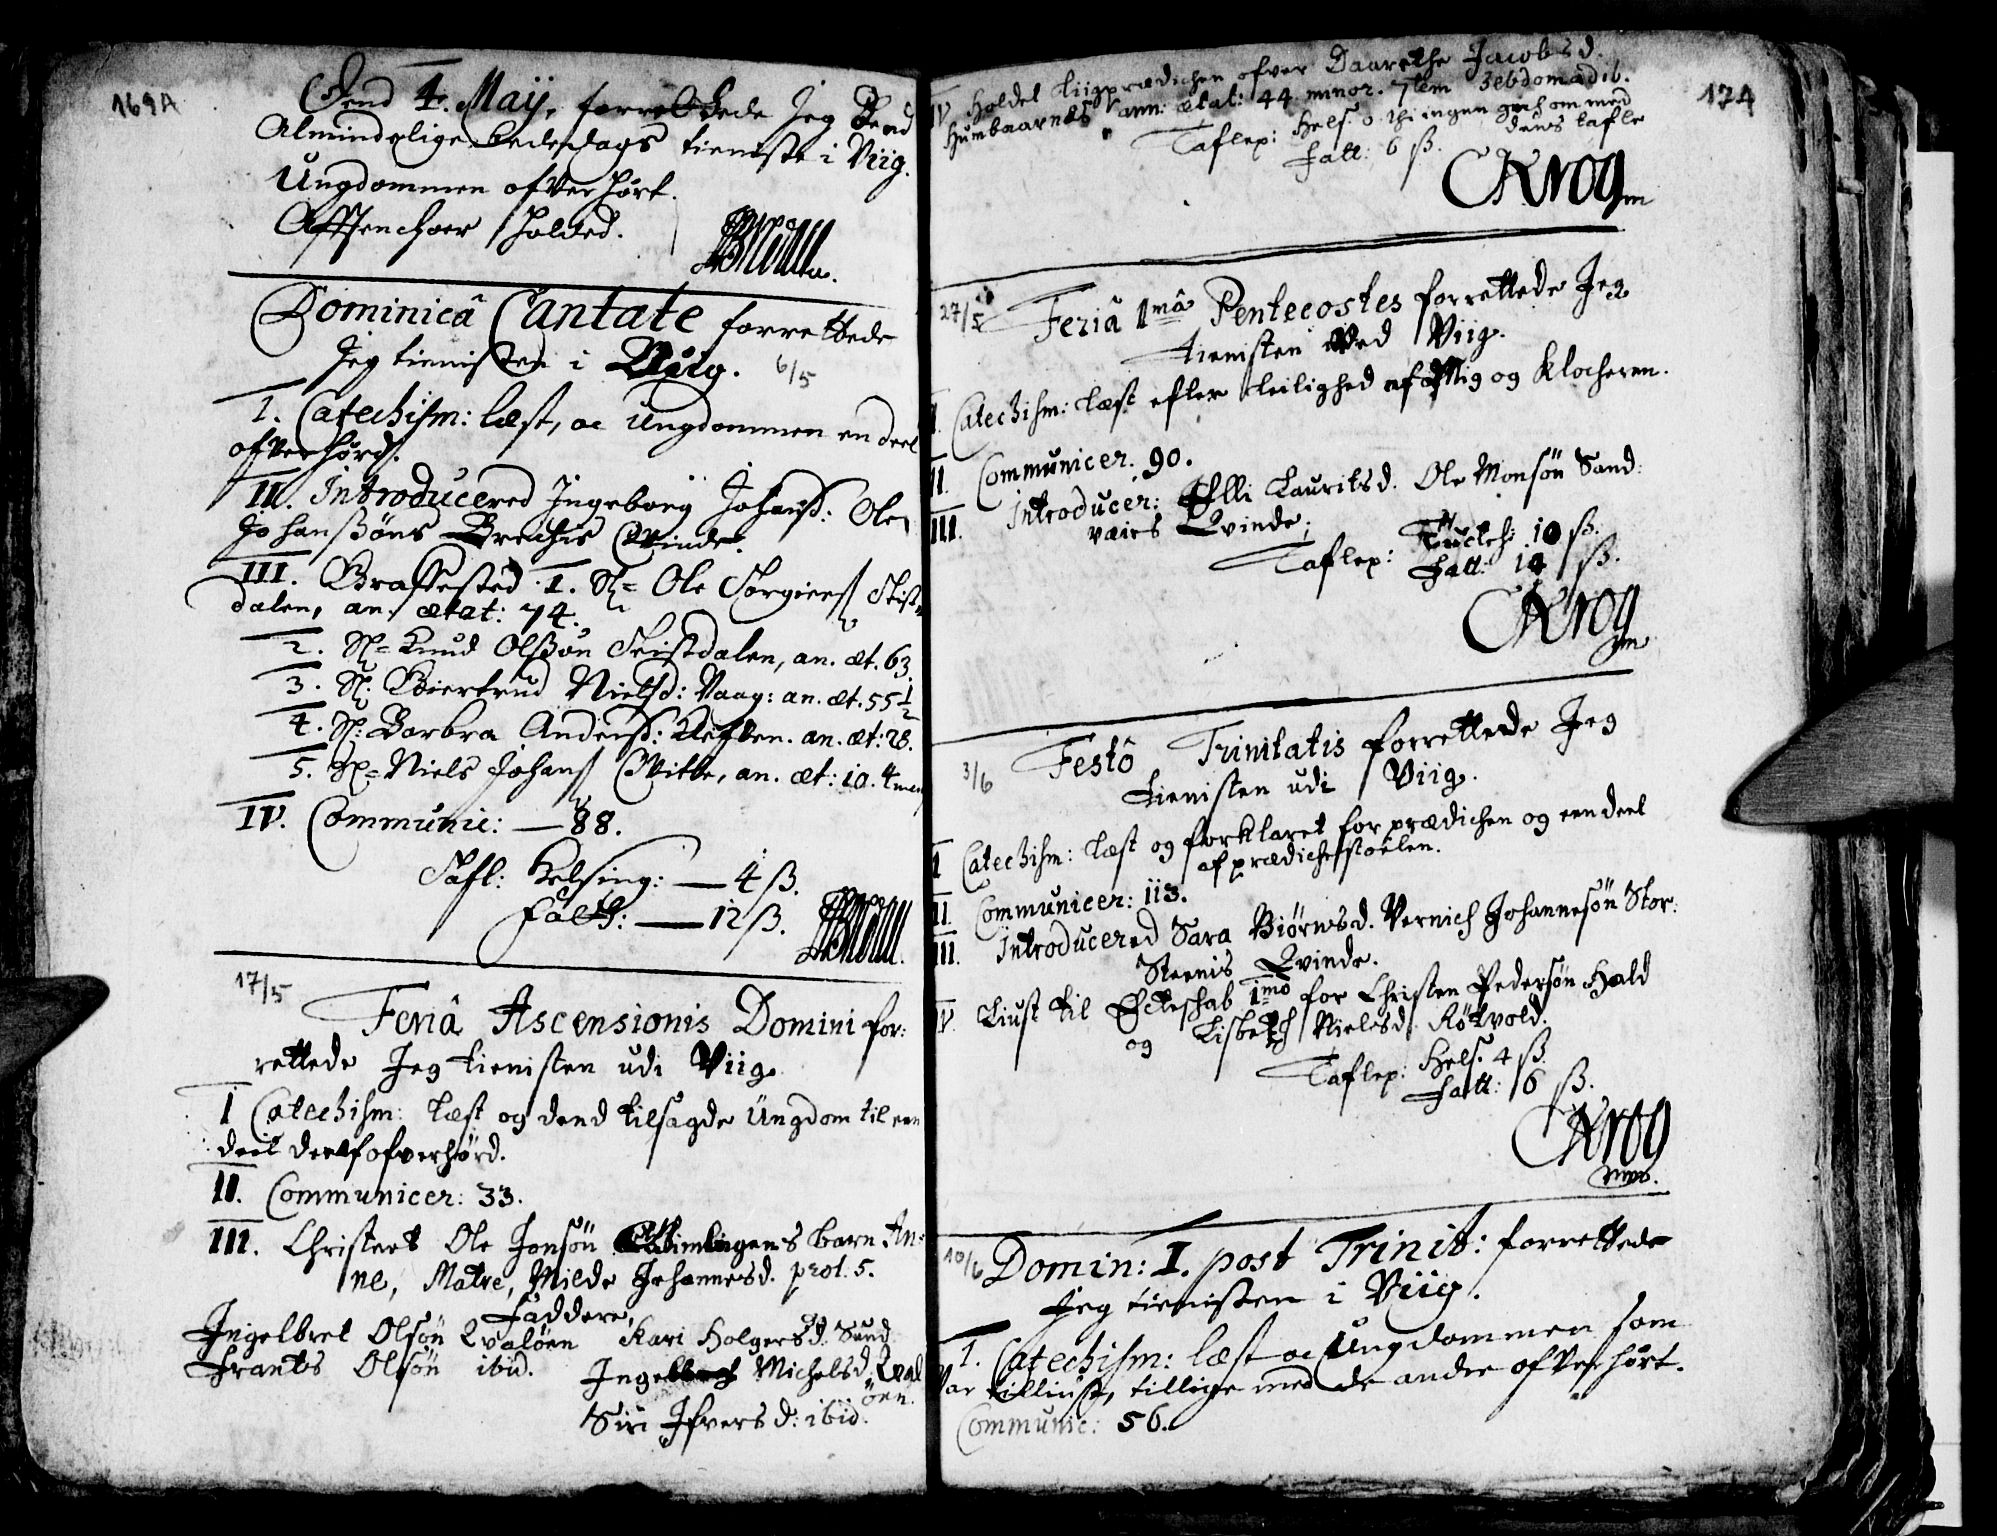 169A
Dend 4. Maij, forrettede Jeg Dend
Almindelige bededags tieniste i Viig.
Ungdommen ofverhørt.
holded.
Dominicâ Cantate forrettede
Jeg tienisten i Viig. 6/5
I. Catechism: læst, oc Ungdommen en deel
ofverhørd.
II. Introducered Ingeborg Johansd: Ole
Johansøns Brechis Qvinde.
III. Graffested. 1. Sl= Ole Torgiers
dalen, an. ætat: 74.
2. Sl= Knud Olssøn Skistdalen, an. æt. 63.
3. Sl: Giertrud Nielsd: Vaag: an. æt. 55 1/2
4. Sl: Barbra Andersd: Kleffven. an. æt: 28.
5. Sl= Niels Johans Hvitte, an. æt: 10. 4 men
IV. Communic: — 88.
Tafl: Helsing: — 4 ß.
Fatt: — 12 ß.
17/5
Feriâ Ascensionis Domini for:
rettede Jeg tienisten udi Viig.
I Catechism: læst og dend tilsagde Ungdom til een
deel deraf ofverhørd.
II. Communicer: 33.
III. Christnet Ole Jonsøn barn An:
ne, Matre, Milde Johannesd. prol. 5.
Faddere,
Ingelbret Olsøn Qvaløen Kari Holgersd. Sund
Frants Olsøn ibid. Michelsd. Qval
øen.
Siri Ifversd: ibid.
174
IV Holdet Liigprædichen ofver Daarethe Jacobsd.
Humbaarnes ann: ætat: 44 minor. 7tem hebdomadib.
Taflep: Hels. 0. thi ingen gich om med
dens tafle
Fatt: 6 ß.
CKrog
27/5
Feriâ 1mâ Pentecostes forrettede Jeg
tienisten Ved Viig.
I. Catechism: læst efter Leilighed af Mig og Klocheren.
II. Communicer. 90.
III. Introducer: Elli Lauritsd. Ole Monsøn Sand:
værs Qvinde;
Taflep: Tuctch: 10 ß.
Fatt: 14 ß.
CKrog
3/6
Festô Trinitatis forrettede Jeg
tienisten udi Viig.
I Catechism: læst og forklaret for prædichen og een deel
af prædichestoelen.
II. Communicer: 113.
III. Introducered Sara Biørnsd. Vernich Johannesøn Stor:
Steenis Qvinde.
IV. Liust til Ecteschab 1mo for Christen Pedersøn Hald
og Lisbeth Nielsd. Røtvold.
Taflep: Hels. 4 ß.
Fatt: 6 ß.
CKrog
mpr.
10/6
Domin: I. post Trinit: forrettede
Jeg tienisten i Viig.
I. Catechism: læst oc Ungdommen som
var tilliust, tillige med de andre ofverhørt.
Communic: 56.